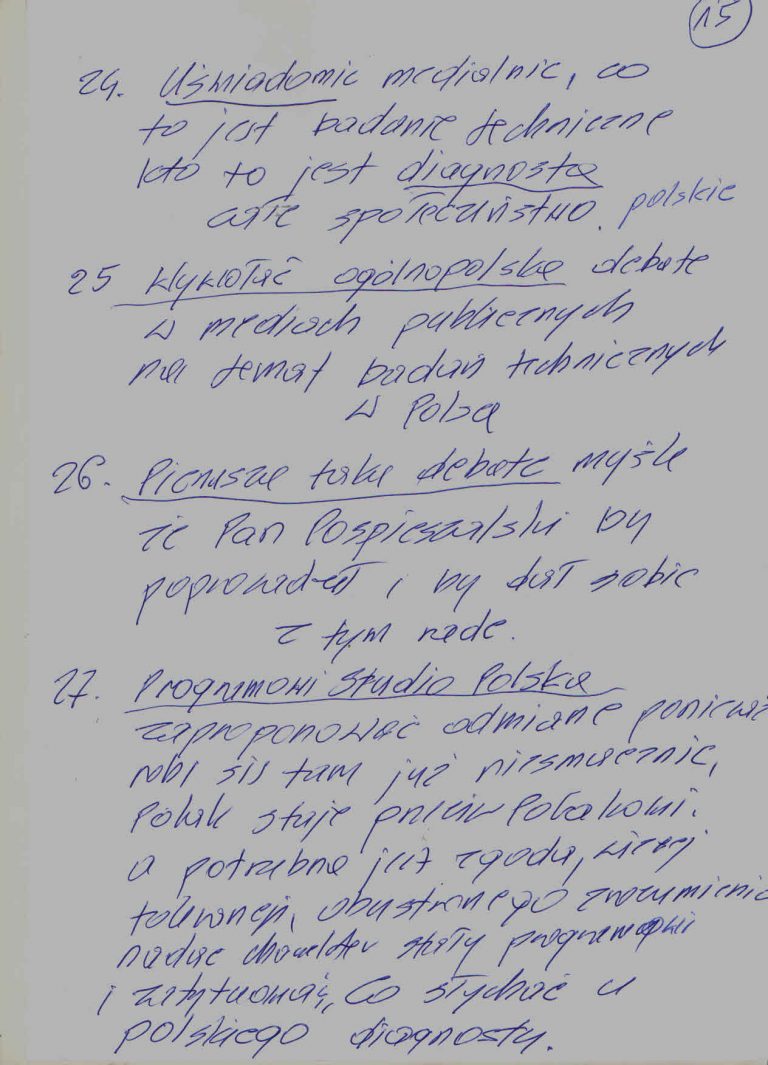 15
24. Uświadomić medialnie, co
to jest badanie techniczne
kto to jest diagnosta
całe społeczeństwo. polskie
25 Wywołać ogólnopolską debatę
w mediach publicznych
na temat badań technicznych
w Polsce
26. Pierwszą taką debatę myślę
że Pan Pospieszalski by
poprowadził i by dał sobie
z tym radę.
27. Programowi Studio Polska
zaproponować odmianę ponieważ
robi się tam już niesmacznie,
Polak staje przeciw Polakowi.
a potrzebna jest zgoda, więcej
tolerancji, obustronnego zrozumienia
nadać charakter stały
i zatytuować „Co słychać u
polskiego diagnosty.